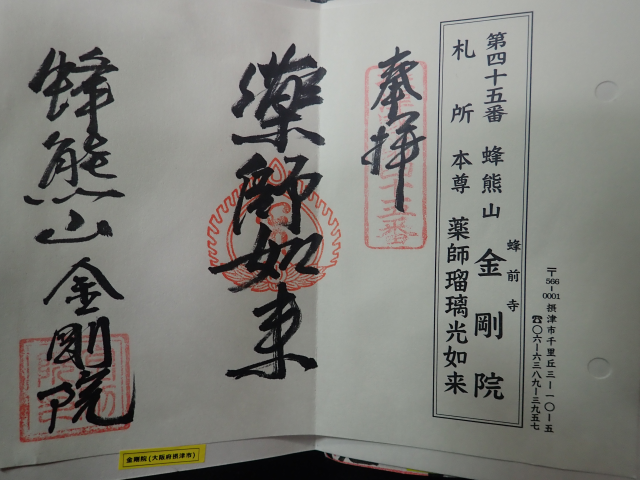 第四十五番 蜂熊山 金剛院
蜂前寺
札所本尊 薬師瑠璃光如来
〒566-0001 摂津市千里丘三-一〇-五
☎〇六-六三八九-三九五七
奉拝
薬師如来
蜂熊山 金剛院
金剛院(大阪府摂津市)